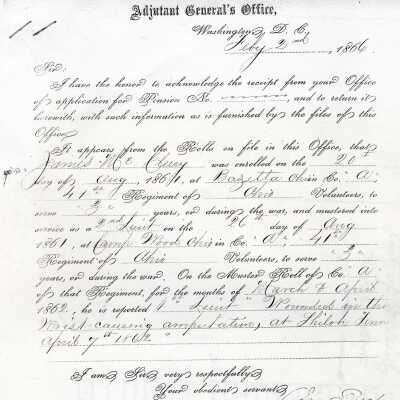 Adjutant General's Office,
Washington, D. C.,
Feby 2nd, 1866
Sir:
I have the honor to acknowledge the receipt from your Office
of application for Pension No. , and to return it
herewith, with such information as is furnished by the files of this
Office.
It appears from the Rolls on file in this Office, that
James Mc Cleery was enrolled on the 20th
day of Aug, 1861, at Bazetta Ohio in Co. "A"
41st Regiment of Ohio Volunteers, to
serve 3 years, or during the war, and mustered into
service as a 2nd Lieut on the 26th day of Aug
1861, at Camp Wood Ohio in Co. "A" 41st
Regiment of Ohio Volunteers, to serve 3
years, or during the war. On the Muster Roll of Co. "A"
of that Regiment, for the months of March & April
1862, he is reported 1st Lieut "Wounded in the
Wrist causing amputation, at Shiloh Tenn
April 7th 1862"
I am Sir very respectfully
Your obedient servant